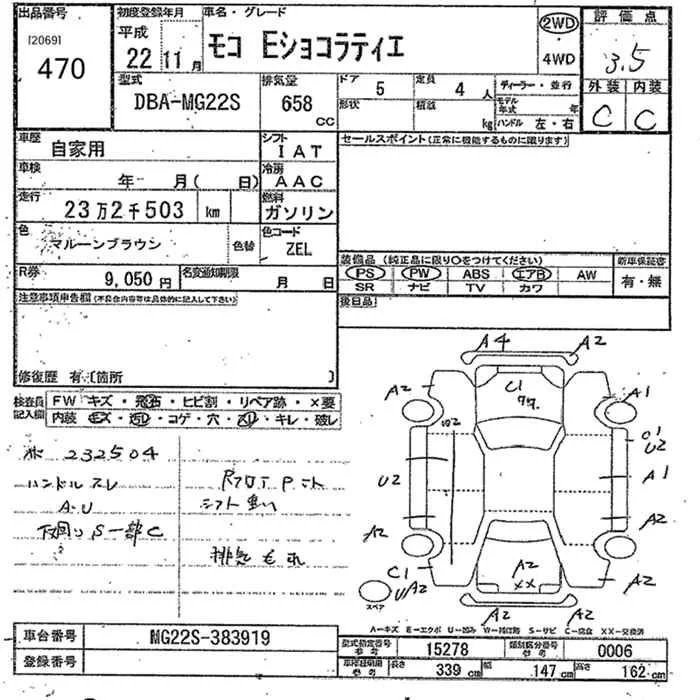 出品番号
[2069]
470
初度登録年月
平成
22 11月
車名・グレード
モコ Eショコラティエ
2WD
4WD
評価点
3.5
外装 内装
C C
型式
DBA-MG22S
排気量
658 CC
ドア 5
形状
定員 4 人
積載 kg
ディーラー・並行
モデル年式 年
ハンドル 左・右
車歴 自家用
シフト IAT
セールスポイント(正常に機能するものに限ります)
車検 年 月( 日)
冷房 AAC
走行 23万2千503 km
燃料 ガソリン
色 マルーンブラウン 色替
色コード ZEL
装備品(純正品に限り○をつけてください)
PS PW ABS エアB AW
SR ナビ TV カワ
新車保証書
有・無
R券 9,050円
名変通知期限 月 日
後日品
注意事項申告欄(不具合内容等は具体的に記入して下さい)
修復歴 有〔箇所 〕
検査員記入欄
FW キズ・飛石・ヒビ割・リペア跡・×要
内装 キズ・汚レ・コゲ・穴・スレ・キレ・破レ
232504
ハンドルスレ
A・U
下回りS一部C
シフト重い
排気もれ
A4 A2
A2 C1 A1
U2 U2
A1
A2 A2
C1 A2 XX A2
UA2
A2 A2
スペア
A-キズ E-エクボ U-凹み W-補修跡 S-サビ C-腐食 XX-交換済
車台番号 MG22S-383919
登録番号
型式指定番号 参考 15278
類別区分番号 参考 0006
車検証明用 参考
長さ 339 cm
幅 147 cm
高さ 162 cm